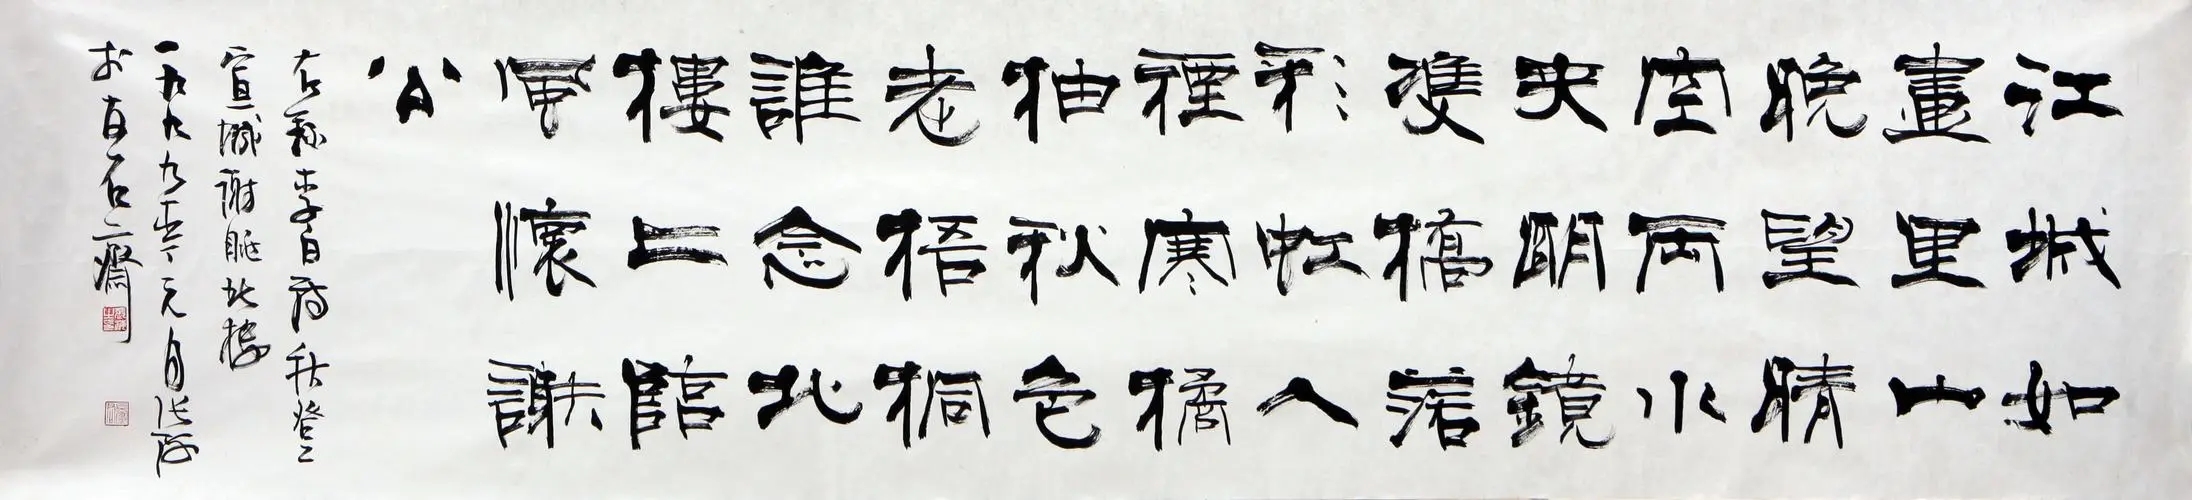 江城如
畫里山
晚望晴
空兩水
夾明鏡
雙橋落
彩虹人
煙寒橘
柚秋色
老梧桐
誰念北
樓上臨
風懷謝
公
右錄李白詩秋登
宣城謝朓北樓
一九九九年元月張
於石齋